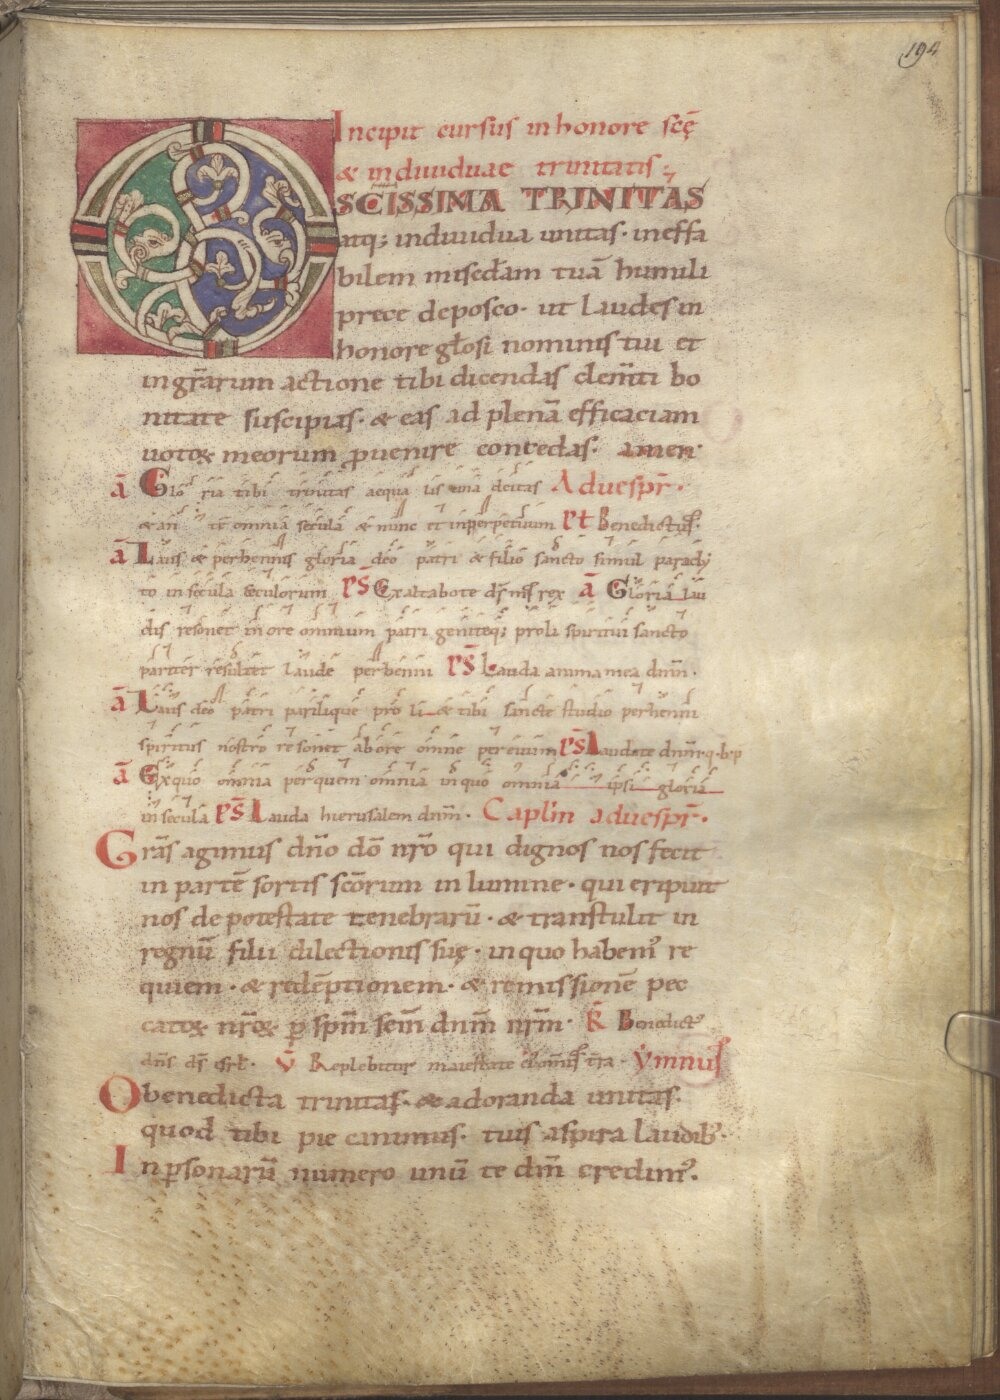 194
Incipit cursus in honore scę̄
& indiuiduae trinitatis
O SCISSIMA TRINITAS
atq; indiuidua unitas · ineffa
bilem miscdāam tuā humili
prece deposco · ut laudes in
honore głosi nominis tui et
in gr̄arum actione tibi dicendas clem̄ti bo
nitate suscipias · & eas ad plenā efficaciam
uotoꝝ meorum ꝓuenire concedas · amen ·
ā Gloria tibi trinitas aequalis una deitas Ad uesp̄r ·
& an te omnia secula & nunc et inperpetuum Benedictus
ā Laus & perhennis gloria deo patri & filio sancto simul paracly
to in secula seculorum ps̄ Exaltabo te ds̄ ms̄ rex ā Gloria lau
dis resonet in ore omnium patri genitęq; proli spiritui sancto
pariter resultet laude perhenni ps̄ Lauda anima mea dnm̄ ·
ā Laus deo patri parilique proli & tibi sancte studio perhenni
spiritus nostro resonet ab ore omne per euum ps̄ Laudate dnm̄ · q · b · p
ā Ex quo omnia per quem omnia in quo omnia ipsi gloria
in secula ps̄ Lauda hierusalem dnm̄ · Caplm̄ ad uesp̄r ·
Gr̄as agimus dn̄o dō nr̄o qui dignos nos fecit
in partē sortis scōrum in lumine · qui eripuit
nos de potestate tenebrarū · & transtulit in
regnū filii dilectionis suę · in quo habem' re
quiem · & redēptionem · & remissionē pec
catoꝝ nr̄oꝝ ꝑ spm̄ scm̄ dnm̄ nr̄m · R̄ Benedict'
dn̄s ds̄ isrł · V̄ Replebitur maiestate t̄ra · Ymnus
O benedicta trinitas · & adoranda unitas ·
quod tibi pie canimus · tuis aspira laudib' ·
In ꝑsonarū numero unū te dm̄ credim' ·